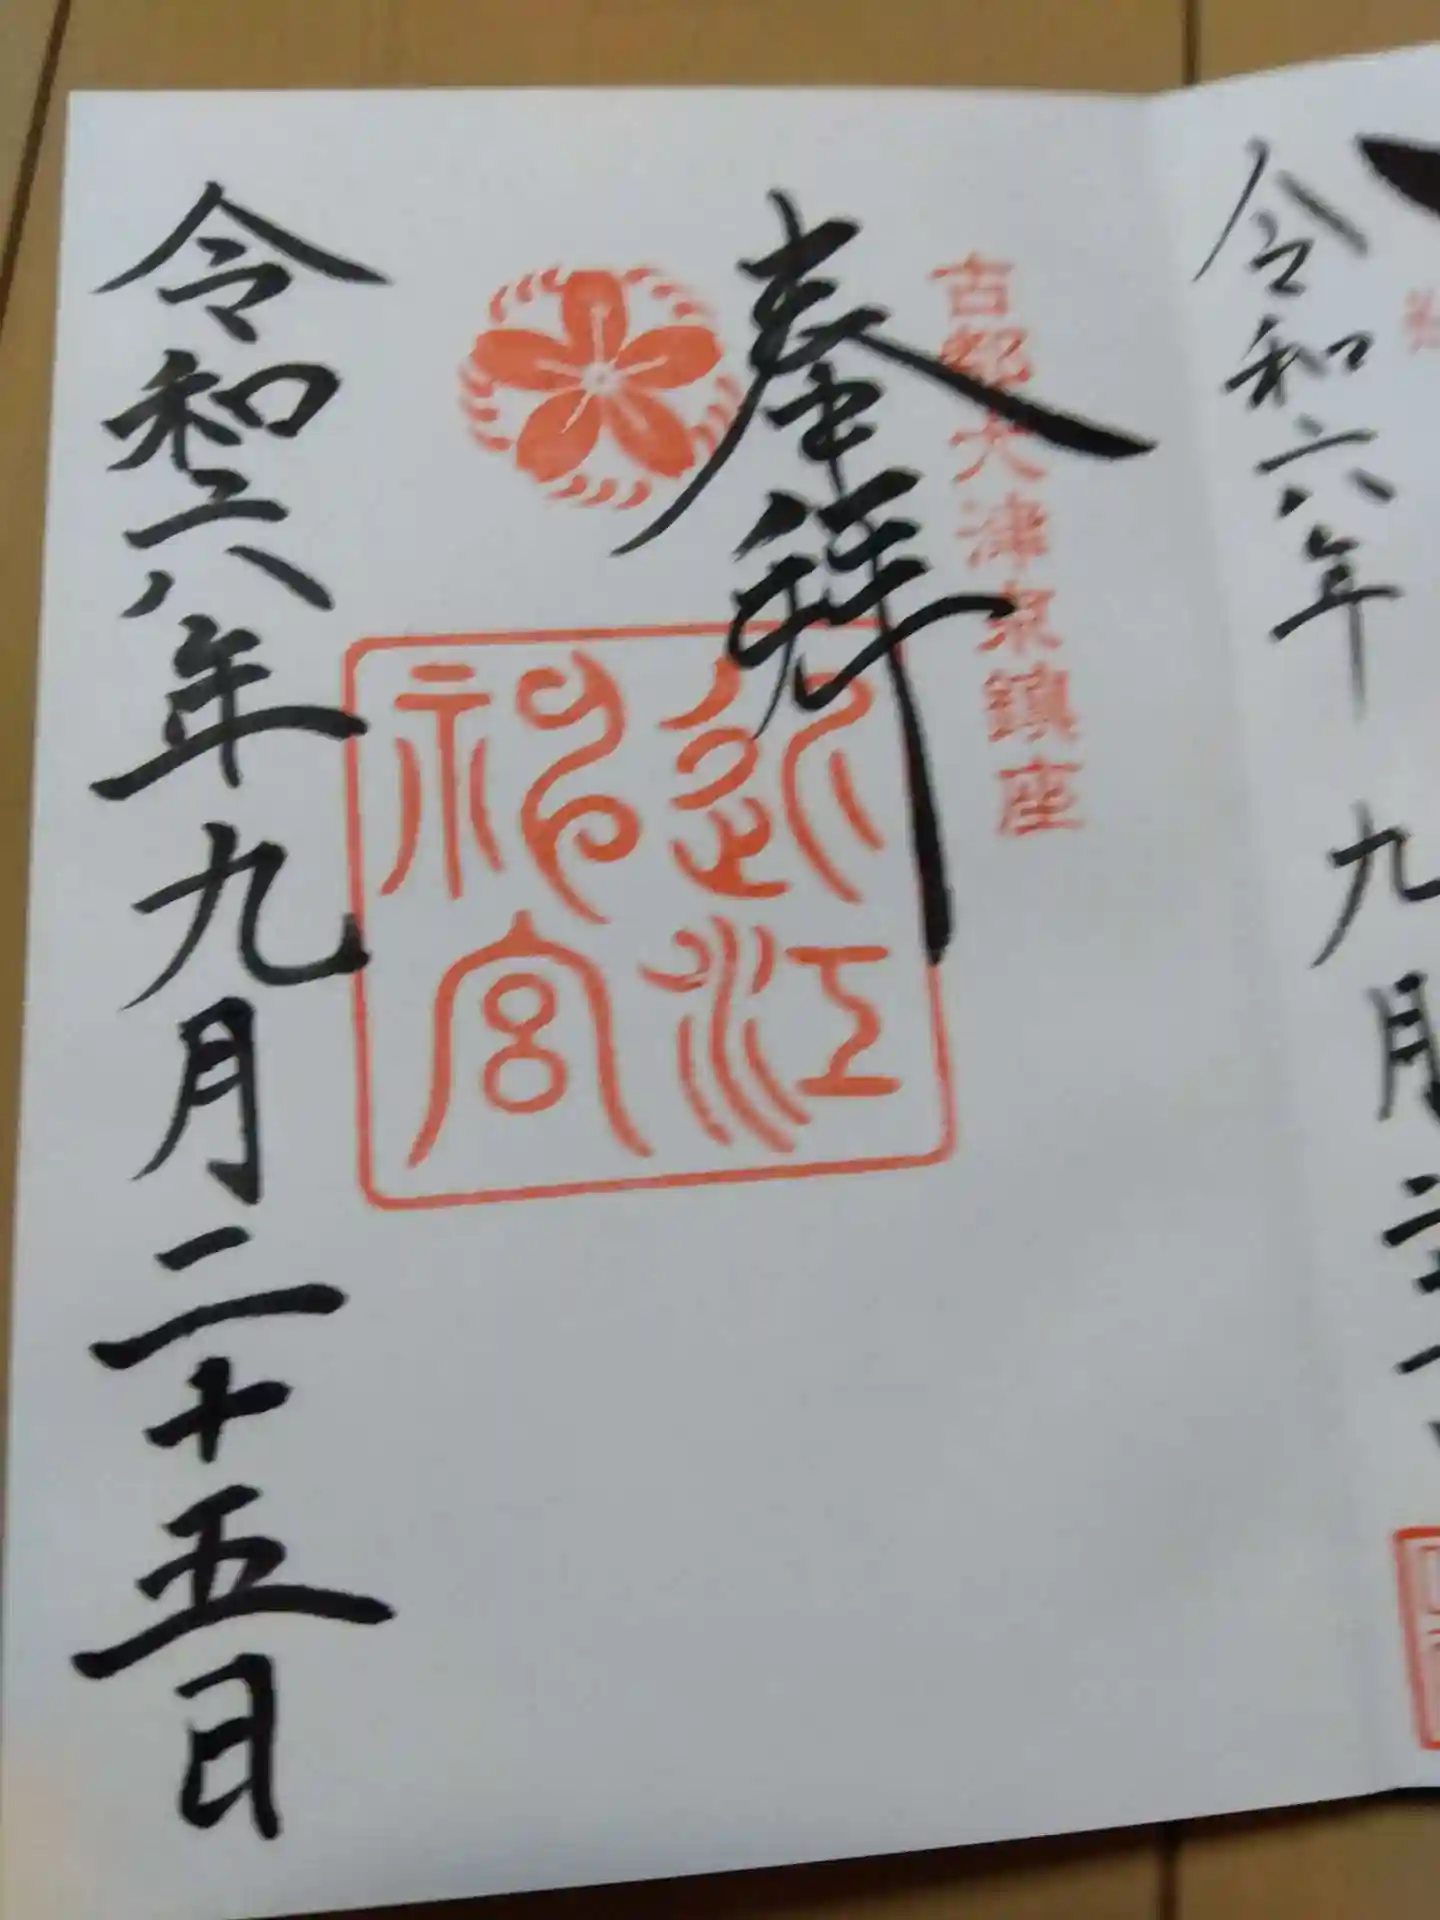 令和六年
九月二
古都大津京鎮座
奉拝
近江
神宮
令和六年九月二十五日